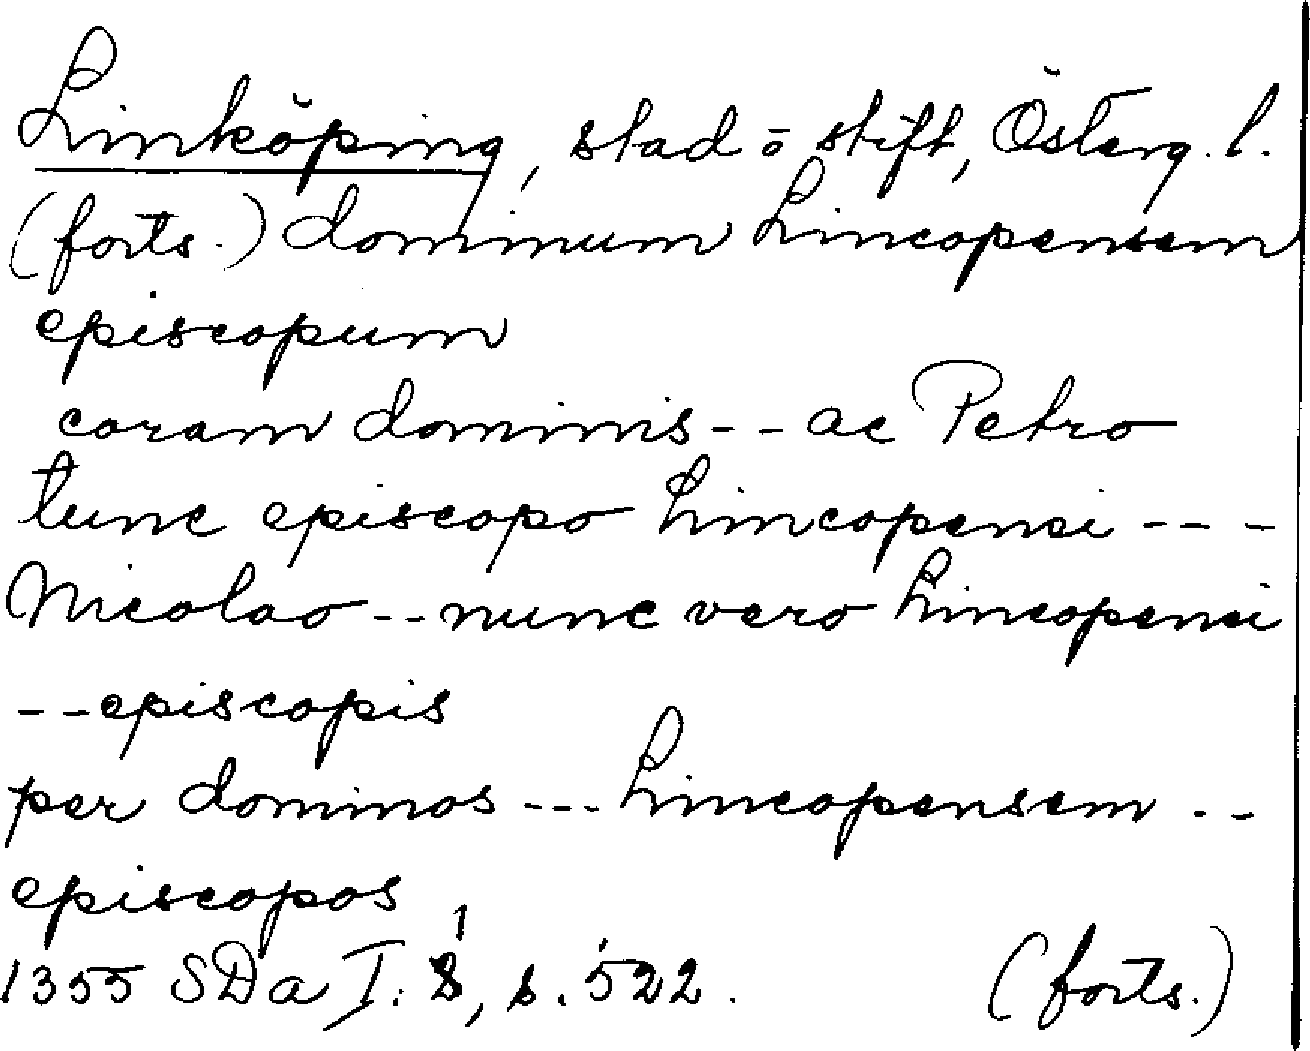 Linköping, stad o stift, Österg. l.
(forts.) dominum Lincopensem
episcopum
coram dominis -- ac Petro
tunc episcopo Lincopensi ---
Nicolao -- nunc vero Lincopensi
-- episcopis
per dominos --- Lincopensem --
episcopos
1355 SDa I: 1, s. 522. (forts.)